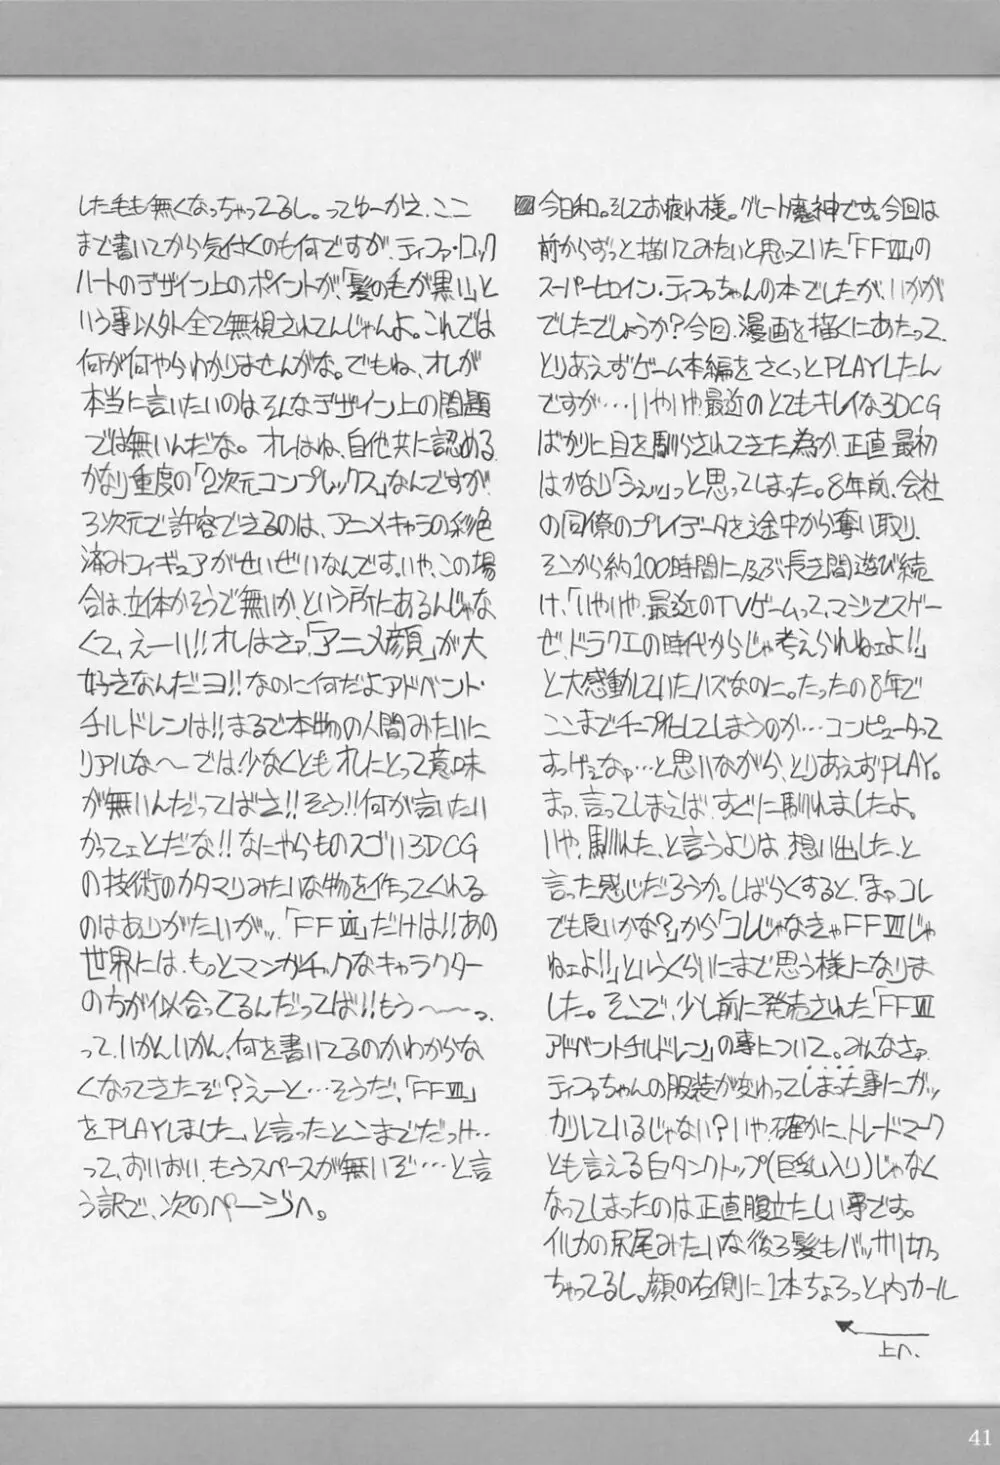 今日和。そしてお疲れ様。グレート魔神です。今回は
前からずっと描いてみたいと思っていた「FFⅦ」の
スーパーヒロイン・ティファちゃんの本でしたが、いかが
でしたでしょうか?今回、漫画を描くにあたって、
とりあえずゲーム本編をさくっとPLAYしたん
ですが…いやいや、最近のとてもキレイな3DCG
ばかりに目を馴らされてきた為か、正直、最初
はかなり「うえッ」っと思ってしまった。8年前、会社
の同僚のプレイデータを途中から奪い取り、
そこから約100時間に及ぶ長き間遊び続
け、「いやいや、最近のTVゲームって、マジでスゲー
ぜ、ドラクエの時代からじゃ考えられねェよ!!」
と大感動していたハズなのに。たったの8年で
ここまでチープ化してしまうのか…コンピュータって
すっげェなァ…と思いながら、とりあえずPLAY。
まァ、言ってしまえば、すぐに馴れましたよ。
いや、馴れた、と言うよりは、想い出した、と
言った感じだろうか。しばらくすると、「まァコレ
でも良いかな?」から「コレじゃなきゃFFⅦじゃ
ねェよ!!」というくらいにまで思う様になりま
した。そこで、少し前に発売された「FFⅦ
アドベントチルドレン」の事について。みんなさァ、
ティファちゃんの服装が変わってしまった事にガッ
カリしているじゃない?いや、確かに、トレードマーク
とも言える白タンクトップ(巨乳入り)じゃなく
なってしまったのは正直腹立たしい事です。
イルカの尻尾みたいな後ろ髪もバッサリ切っ
ちゃってるし。顔の右側に1本ちょろっと内カール
上へ.
した毛も無くなっちゃってるし。ってゆーかえ、ここ
まで書いてから気付くのも何ですが、ティファ・ロック
ハートのデザイン上のポイントが、「髪の毛が黒い」と
いう事以外全て無視されてんじゃんよ。これでは
何が何やらわかりませんがな。でもね、オレが
本当に言いたいのはそんなデザイン上の問題
では無いんだな。オレはね、自他共に認める、
かなり重度の「2次元コンプレックス」なんですが、
3次元で許容できるのは、アニメキャラの彩色
済みフィギュアがせいぜいなんです。いや、この場
合は、立体かそうで無いか、という所にあるんじゃな
くて、えーい!!オレはさァ、「アニメ顔」が大
好きなんだヨ!!なのに何だよアドベント・
チルドレンは!!まるで本物の人間みたいに
リアルな〜では、少なくともオレにとって意味
が無いんだってばさ!!そう!!何が言いたい
かってェとだな!!なにやらものスゴい3DCG
の技術のカタマリみたいな物を作ってくれる
のはありがたいがッ、「FFⅦ」だけは!!あの
世界には、もっとマンガチックなキャラクター
の方が似合ってるんだってば!!もう〜〜っ、
って、いかんいかん、何を書いてるのかわからな
くなってきたぞ?えーと…そうだ、「FFⅦ」
をPLAYしました、と言ったとこまでだっけ…
って、おいおい、もうスペースが無いぞ…と言
う訳で、次のページへ。
41